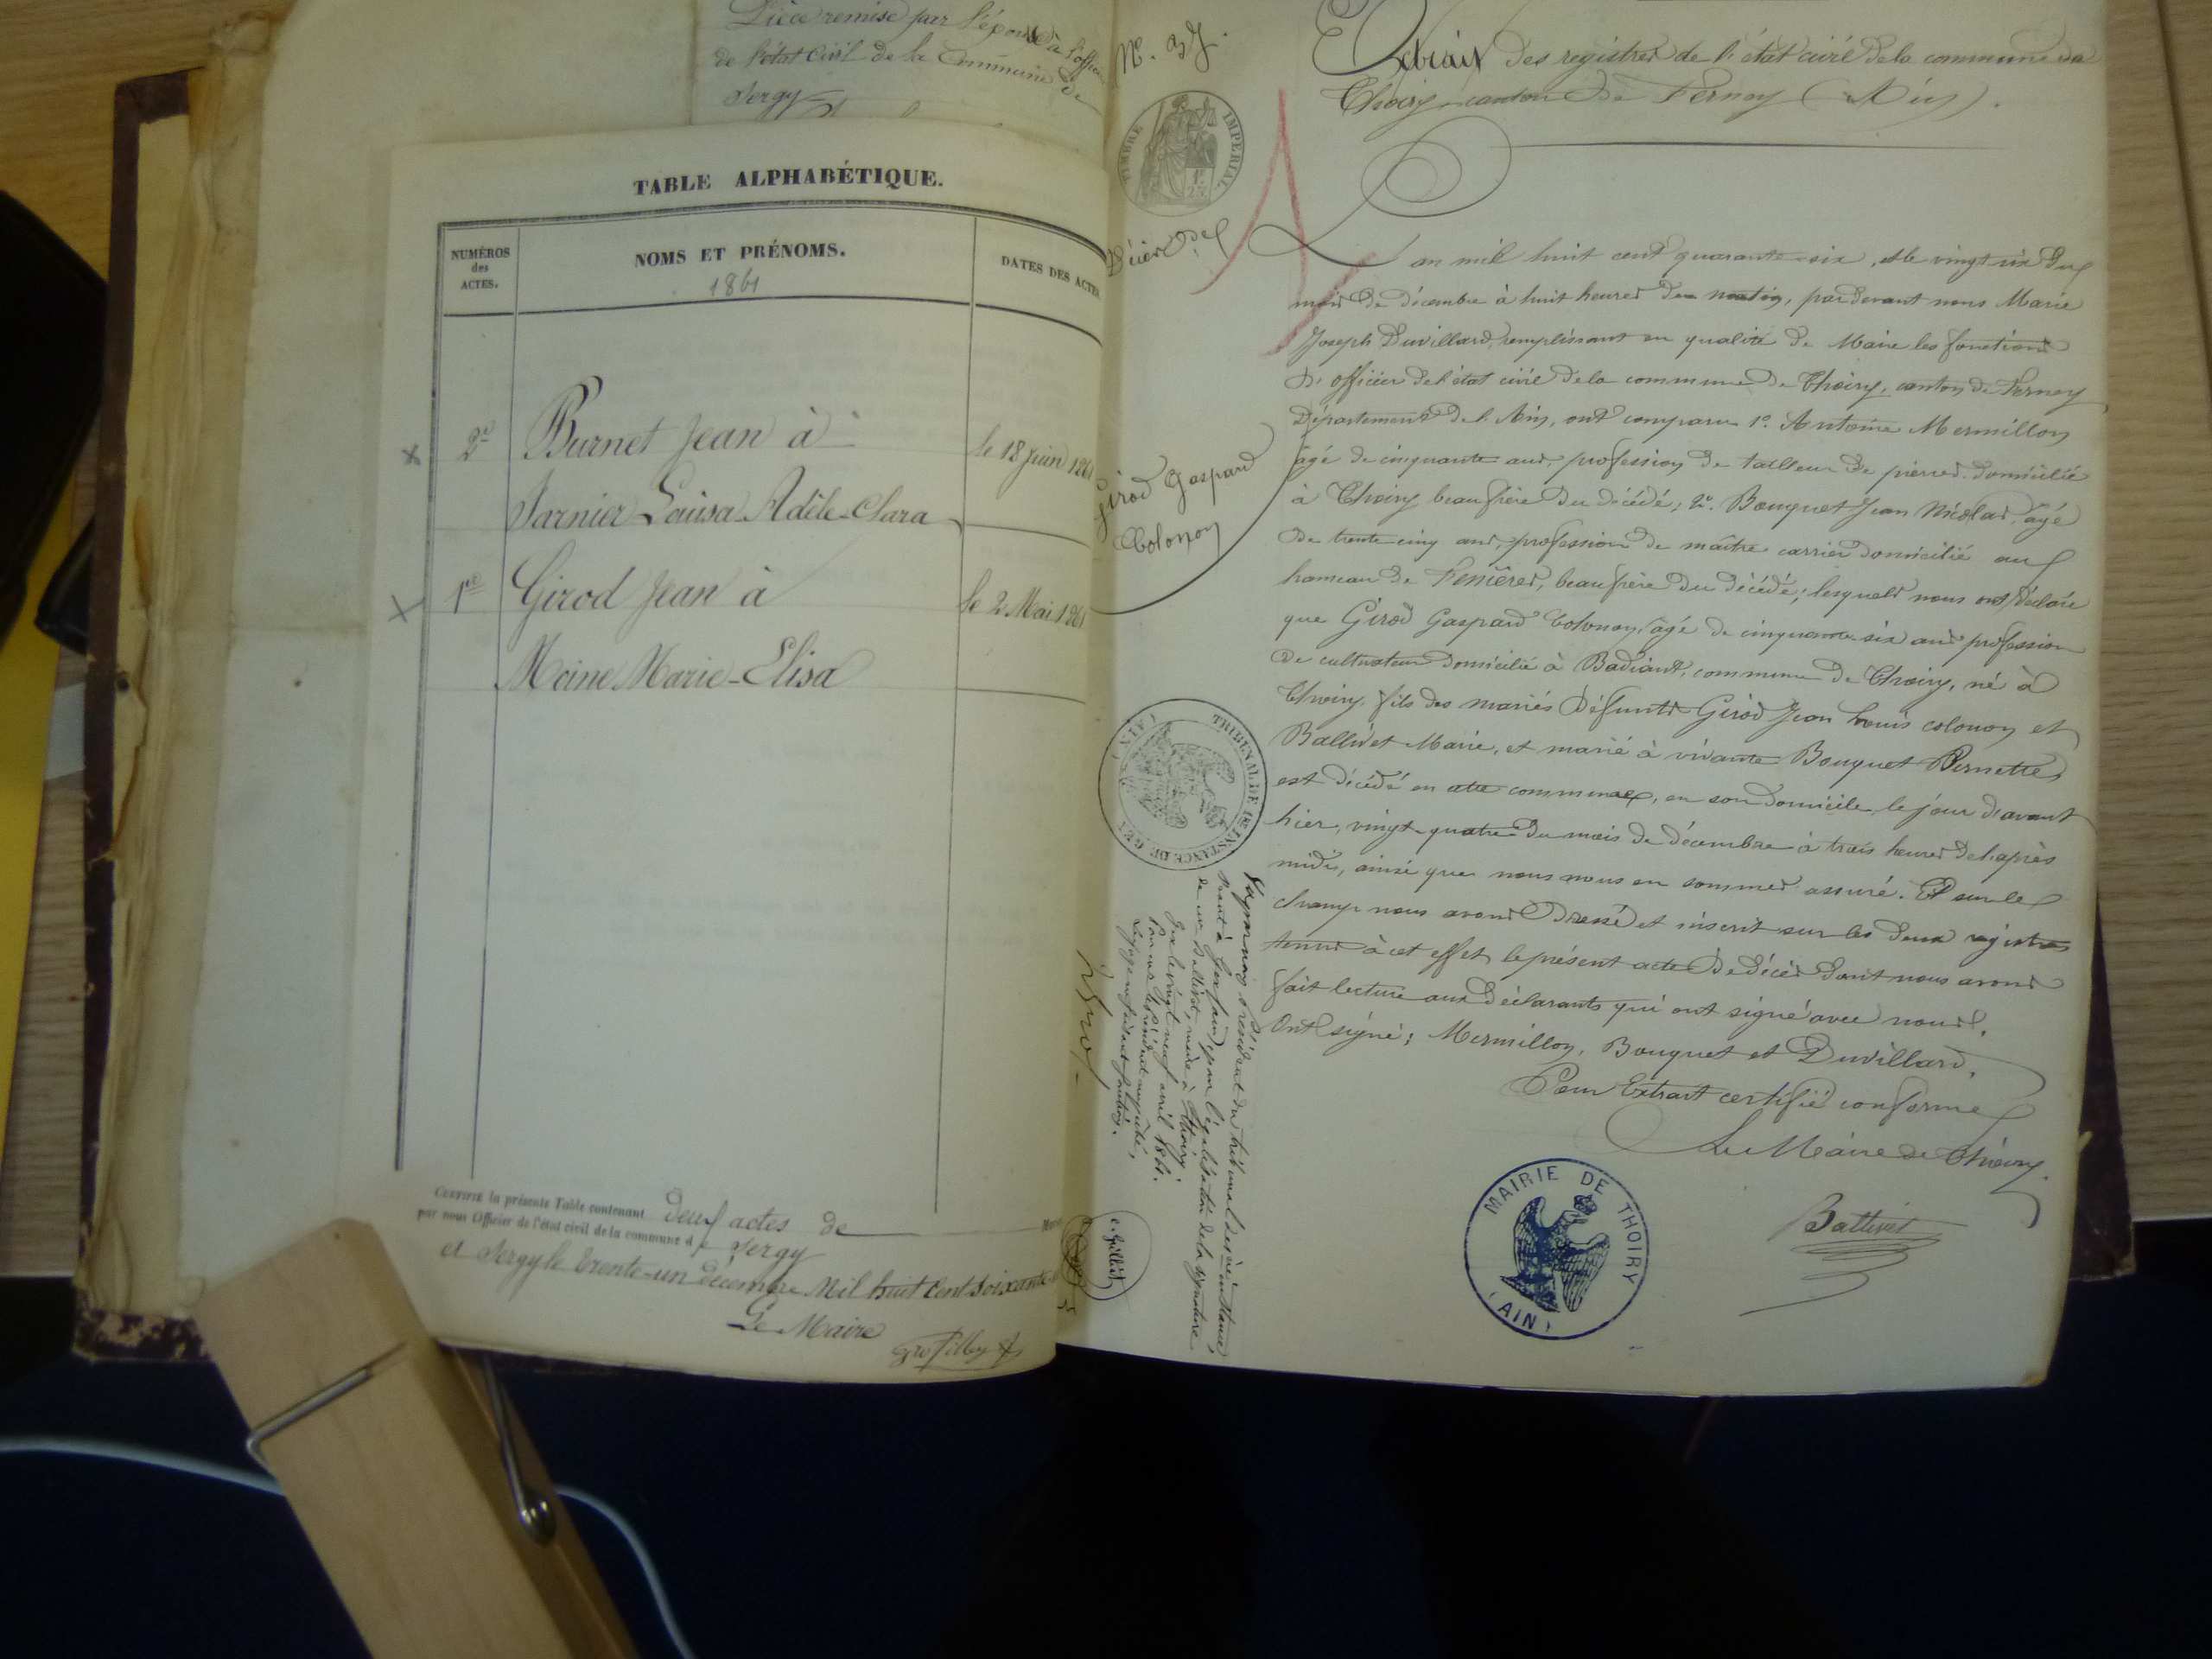 Pièce remise par l'épouse à l'offi
de l'état Civil de la Commune de
Sergy
TABLE ALPHABÉTIQUE.
NUMÉROS des ACTES.
NOMS ET PRÉNOMS.
DATES DES ACTES
1861
2e Burnet Jean à le 18 Juin 1861
Jarnier Louisa Adèle-Clara
1re Girod Jean à le 2 Mai 1861
Moine Marie-Elisa
CERTIFIÉ la présente Table contenant deux actes de
par nous Officier de l'état civil de la commune de Sergy
et Sergy le trente-un décembre Mil huit Cent soixante
Le Maire
N°. 37.
TIMBRE IMPÉRIAL
Décès de
Girod Gaspard
Colonon
TRIBUNAL DE 1RE INSTANCE DE GEX
(AIN)
Vu par nous Président du tribunal de 1ère instance,
séant à Gex pour légalisation de la signature
de mr Battivet, maire à Thoiry.
Gex le vingt neuf avril 1861.
Pour mr le Président empêché,
Le juge
Extrait des registres de l'état civil de la commune de
Thoiry canton de Fernex (Ain).
L'an mil huit cent quarante-six, et le vingt six du
mois de décembre à huit heures du matin, par devant nous Marie
Joseph Duvillard, remplissant en qualité de Maire les fonctions
d'officier de l'état civil de la commune de Thoiry, canton de Fernex
Département de l'Ain, ont comparu 1°. Antoine Mermillon
âgé de cinquante ans, profession de tailleur de pierres domicilié
à Thoiry beau frère du décédé; 2°. Bouquet Jean Nicolas, âgé
de trente cinq ans, profession de maître carrier domicilié au
hameau de Fenières, beau frère du décédé; lesquels nous ont déclaré
que Girod Gaspard Colonon, âgé de cinquante-six ans profession
de cultivateur domicilié à Badiant, commune de Thoiry, né à
Thoiry, fils des mariés défunts Girod Jean Louis colonon et
Ballivet Marie, et marié à vivante Bouquet Pernette,
est décédé en cette commune, en son domicile le jour d'avant
hier, vingt-quatre du mois de décembre à trois heures de l'après
midi, ainsi que nous nous en sommes assuré. Et sur le
champ nous avons dressé et inscrit sur les deux registres
tenus à cet effet le présent acte de décès dont nous avons
fait lecture aux déclarants qui ont signé avec nous.
Ont signé; Mermillon, Bouquet et Duvillard.
Pour Extrait certifié conforme
Le Maire de Thoiry.
Battivet
MAIRIE DE THOIRY
(AIN)